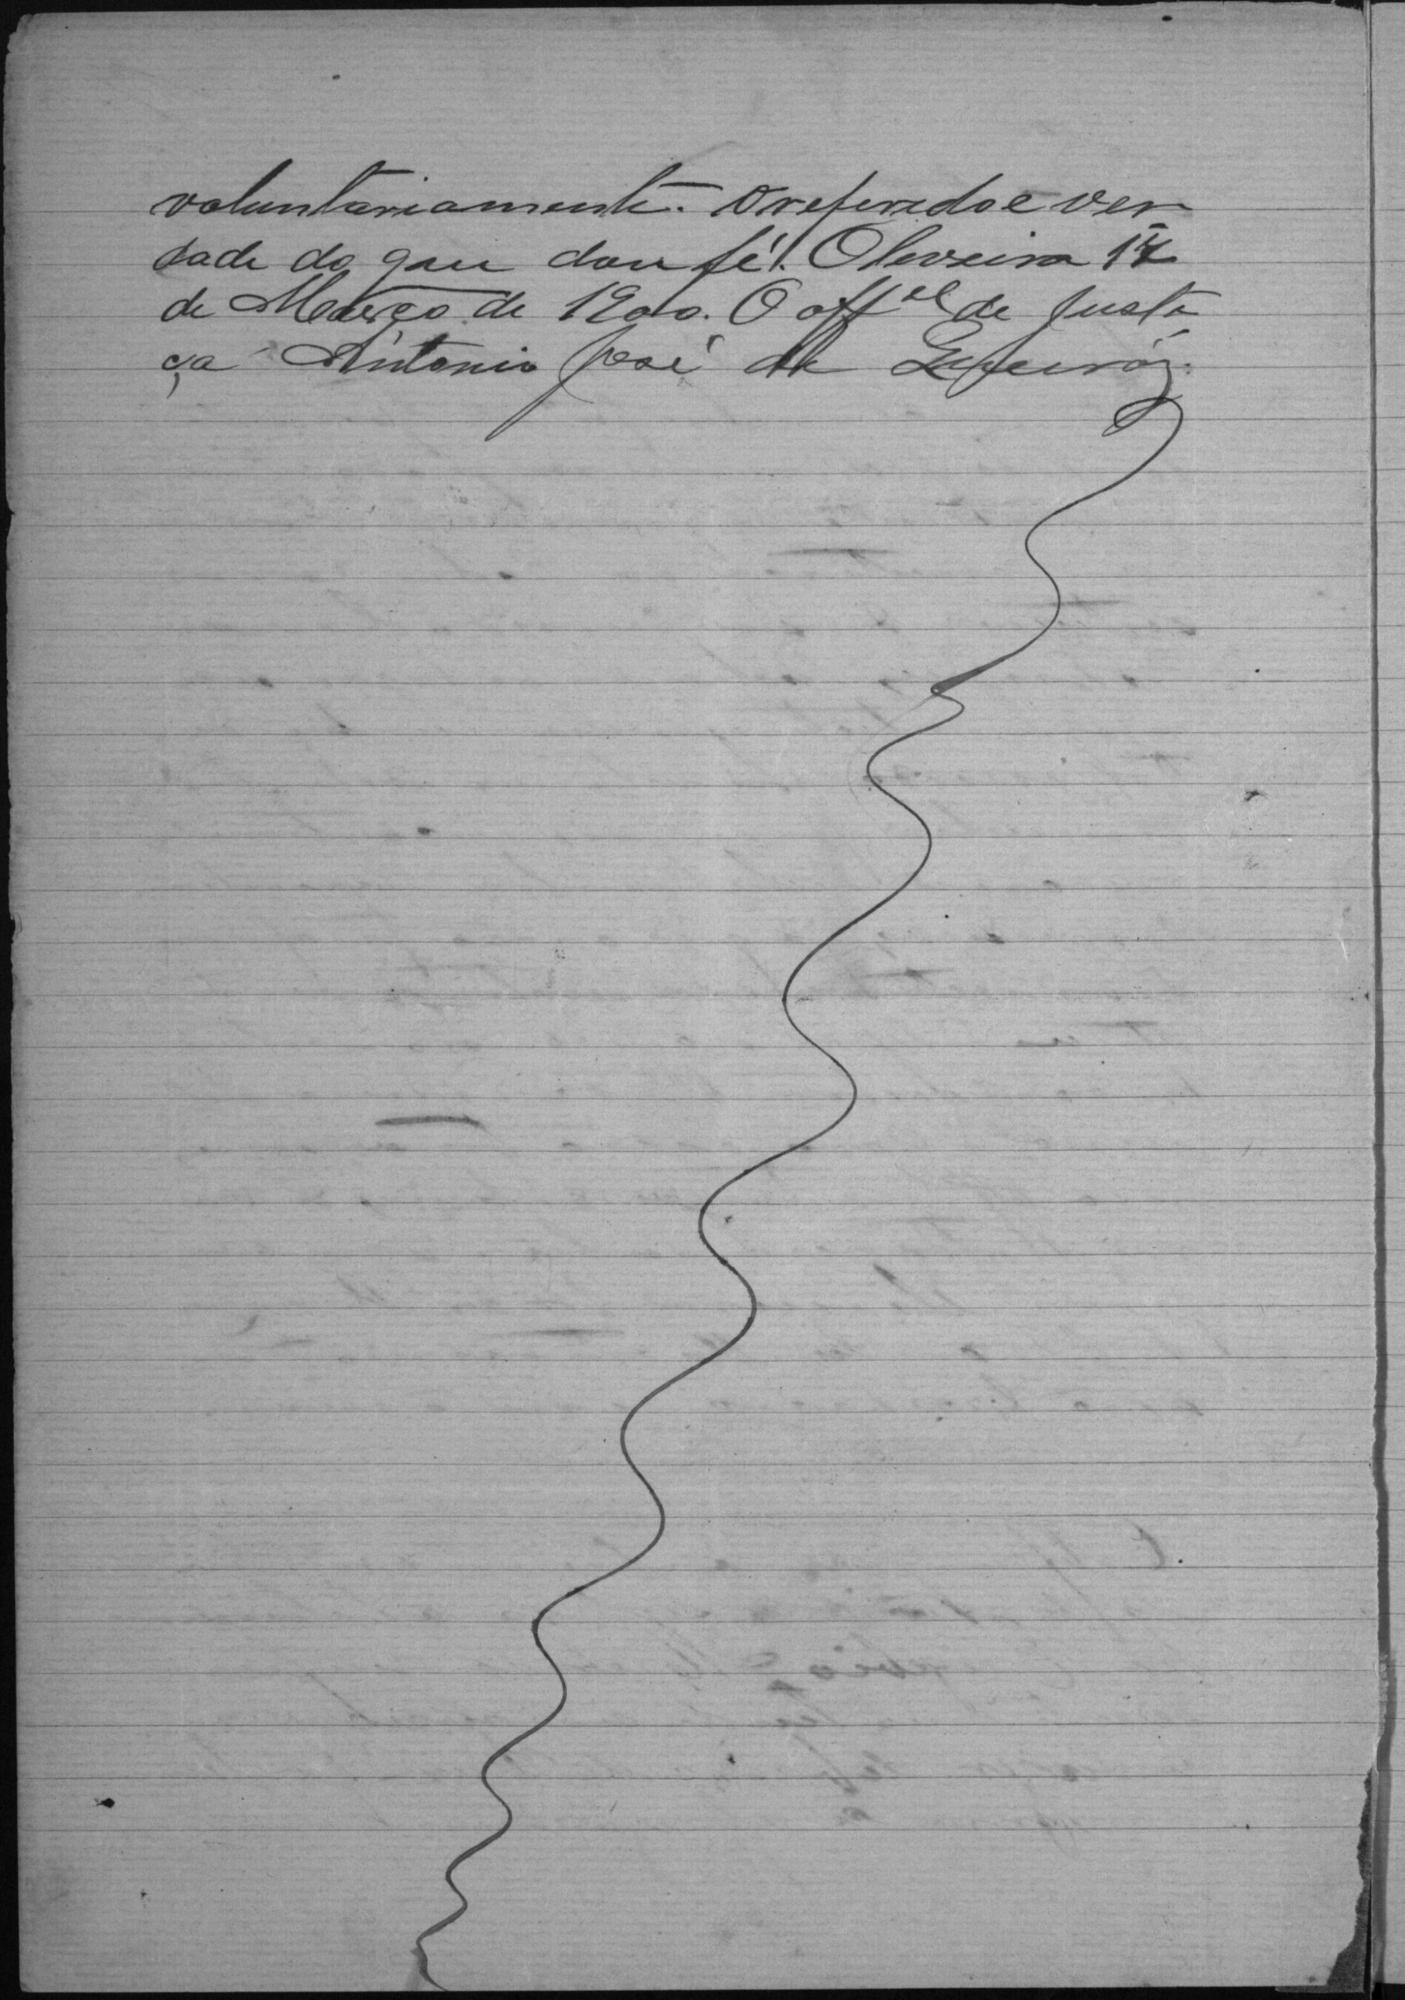 voluntariamente. O referido é ver
dade do que dou fé. Oliveira 17
de Março de 1900. O offel de Justi
ça Antonio José de Queiróz.